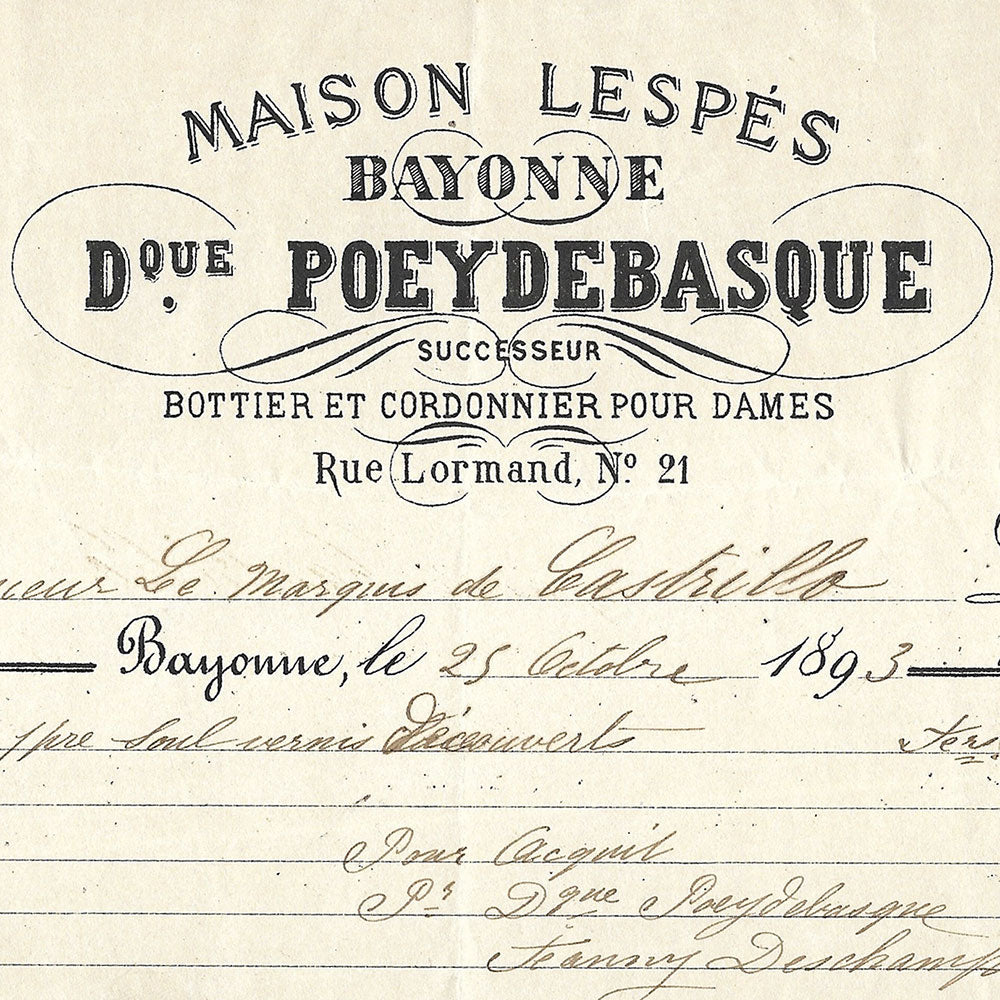 MAISON LESPÉS
BAYONNE
Dque. POEYDEBASQUE
SUCCESSEUR
BOTTIER ET CORDONNIER POUR DAMES
Rue Lormand, No. 21
ieur Le Marquis de Castrillo
Bayonne, le 25 Octobre 1893
1 pre Soul vernis découverts
Pour Acquit
Pr Dque Poeydebasque
Jeanny Deschamps